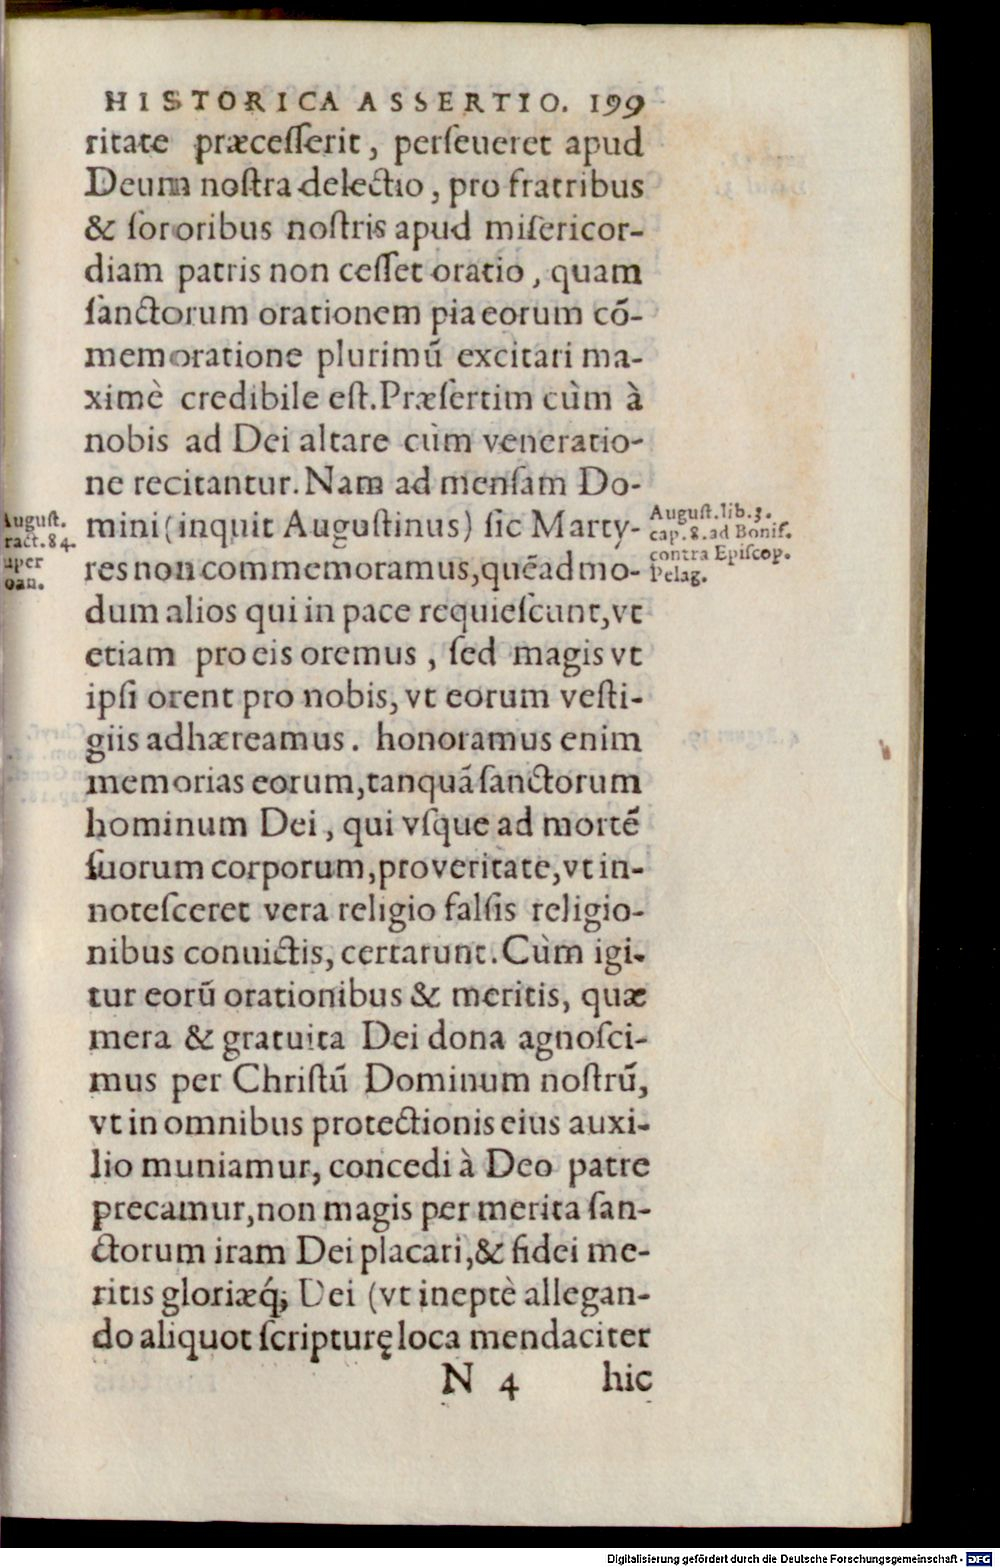 HISTORICA ASSERTIO. 199
ritate præceſſerit, perſeueret apud
Deum noſtra delectio, pro fratribus
& ſororibus noſtris apud miſericor-
diam patris non ceſſet oratio, quam
ſanctorum orationem pia eorum cō-
memoratione plurimū excitari ma-
ximè credibile eſt. Præſertim cùm à
nobis ad Dei altare cùm veneratio-
ne recitantur. Nam ad menſam Do-
mini (inquit Auguſtinus) ſic Marty-
res non commemoramus, quēadmo-
dum alios qui in pace requieſcunt, vt
etiam pro eis oremus, ſed magis vt
ipſi orent pro nobis, vt eorum veſti-
giis adhæreamus. honoramus enim
memorias eorum, tanquā ſanctorum
hominum Dei, qui vſque ad mortē
ſuorum corporum, pro veritate, vt in-
noteſceret vera religio falſis religio-
nibus conuictis, certarunt. Cùm igi-
tur eorū orationibus & meritis, quæ
mera & gratuita Dei dona agnoſci-
mus per Chriſtū Dominum noſtrū,
vt in omnibus protectionis eius auxi-
lio muniamur, concedi à Deo patre
precamur, non magis per merita ſan-
ctorum iram Dei placari, & fidei me-
ritis gloriæq́; Dei (vt ineptè allegan-
do aliquot ſcripturę loca mendaciter
N 4 hic
Auguſt.
ract. 84.
uper
oan.
Auguſt. lib. 3.
cap. 8. ad Bonif.
contra Epiſcop.
Pelag.
Digitalisierung gefördert durch die Deutsche Forschungsgemeinschaft - DFG